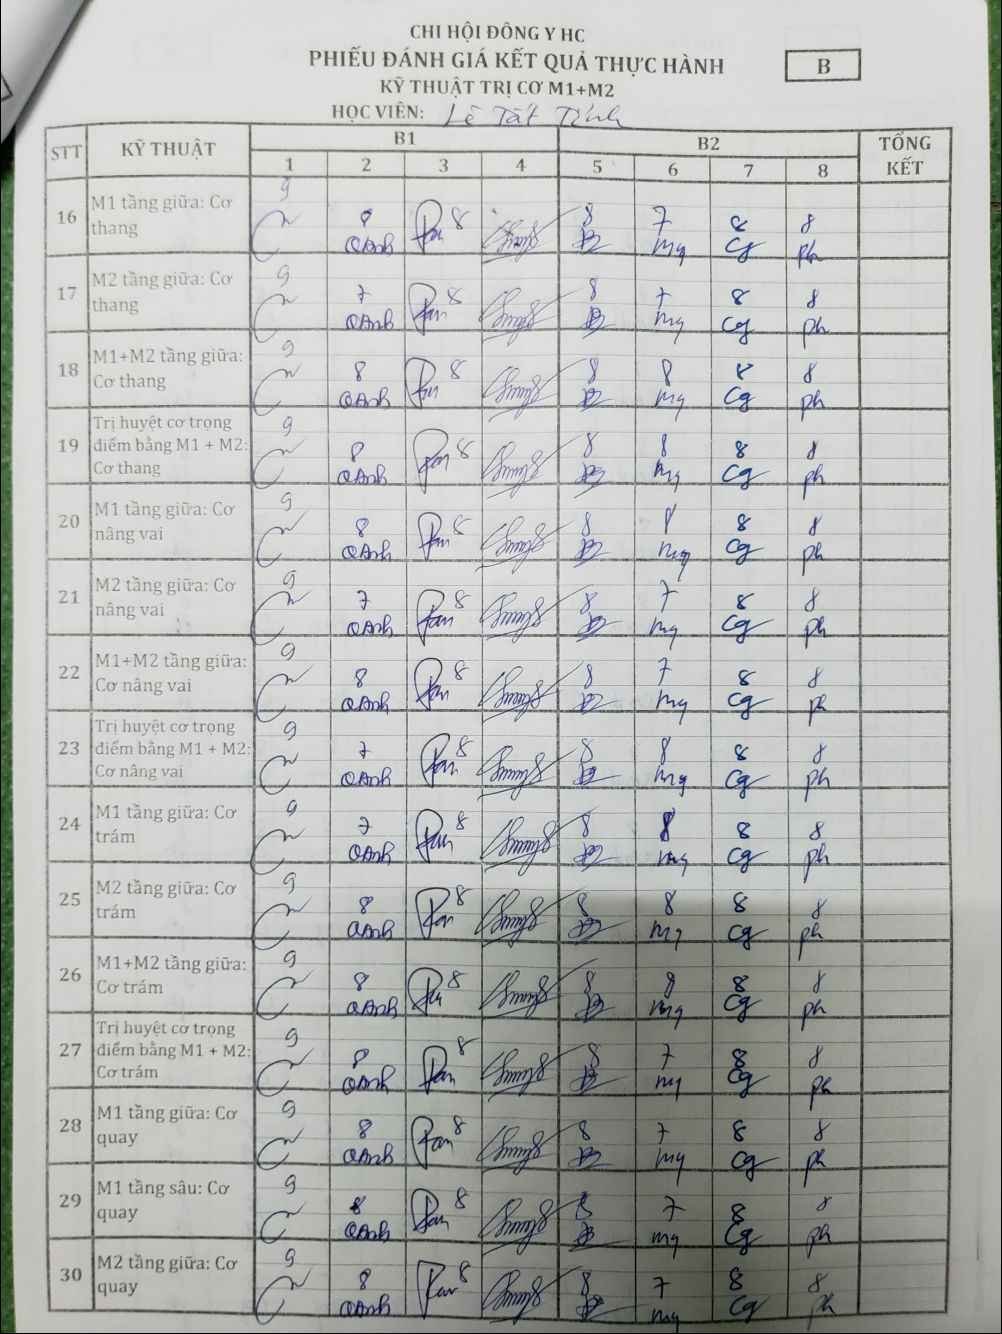 CHI HỘI ĐÔNG Y HC
PHIẾU ĐÁNH GIÁ KẾT QUẢ THỰC HÀNH
B
KỸ THUẬT TRỊ CƠ M1+M2
HỌC VIÊN: Lê Tất Tính
STT KỸ THUẬT B1 B2 TỔNG KẾT
1 2 3 4 5 6 7 8
16 M1 tầng giữa: Cơ thang
9 8 8 8 8 7 8 8
QAnh mq Cg ph
17 M2 tầng giữa: Cơ thang
9 7 8 8 8 7 8 8
QAnh mq Cg ph
18 M1+M2 tầng giữa: Cơ thang
9 8 8 8 8 8 8 8
QAnh mq Cg ph
19 Trị huyệt cơ trọng điểm bằng M1 + M2: Cơ thang
9 8 8 8 8 8 8 8
QAnh mq Cg ph
20 M1 tầng giữa: Cơ nâng vai
9 8 8 8 8 8 8 8
QAnh mq Cg ph
21 M2 tầng giữa: Cơ nâng vai
9 7 8 8 8 7 8 8
QAnh mq Cg ph
22 M1+M2 tầng giữa: Cơ nâng vai
9 8 8 8 8 7 8 8
QAnh mq Cg ph
23 Trị huyệt cơ trọng điểm bằng M1 + M2: Cơ nâng vai
9 7 8 8 8 8 8 8
QAnh mq Cg ph
24 M1 tầng giữa: Cơ trám
9 7 8 8 8 8 8 8
QAnh mq Cg ph
25 M2 tầng giữa: Cơ trám
9 8 8 8 8 8 8 8
QAnh mq Cg ph
26 M1+M2 tầng giữa: Cơ trám
9 8 8 8 8 8 8 8
QAnh mq Cg ph
27 Trị huyệt cơ trọng điểm bằng M1 + M2: Cơ trám
9 8 8 8 8 7 8 8
QAnh mq Cg ph
28 M1 tầng giữa: Cơ quay
9 8 8 8 8 7 8 8
QAnh mq Cg ph
29 M1 tầng sâu: Cơ quay
9 8 8 8 8 7 8 8
QAnh mq Cg ph
30 M2 tầng giữa: Cơ quay
9 8 8 8 8 7 8 8
QAnh mq Cg ph